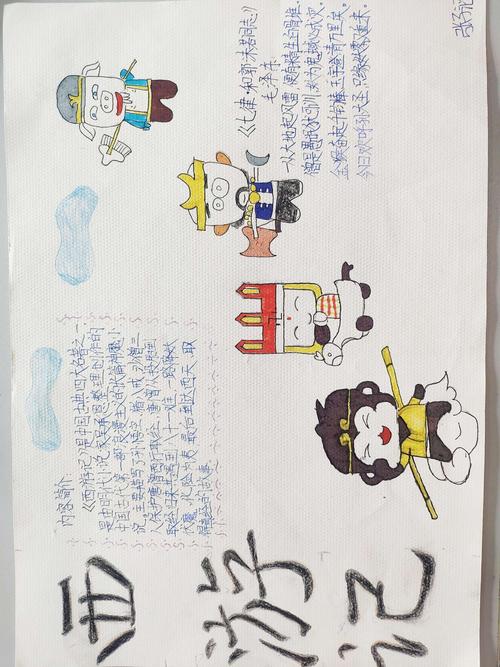 西游记
内容简介:
《西游记》是中国古典四大名著之一,
是由明代小说家吴承恩整理创作的
中国古代第一部浪漫主义长篇神魔小
说,主要描写了孙悟空、猪八戒、沙僧三
人保护唐僧西行取经,唐僧从投胎到
取经归来共遭遇八十一难,一路降妖
伏魔,化险为夷,最后到达西天,取
得真经的故事。
《七律·和郭沫若同志》
毛泽东
一从大地起风雷,便有精生白骨堆。
僧是愚氓犹可训,妖为鬼蜮必成灾。
金猴奋起千钧棒,玉宇澄清万里埃。
今日欢呼孙大圣,只缘妖雾又重来。